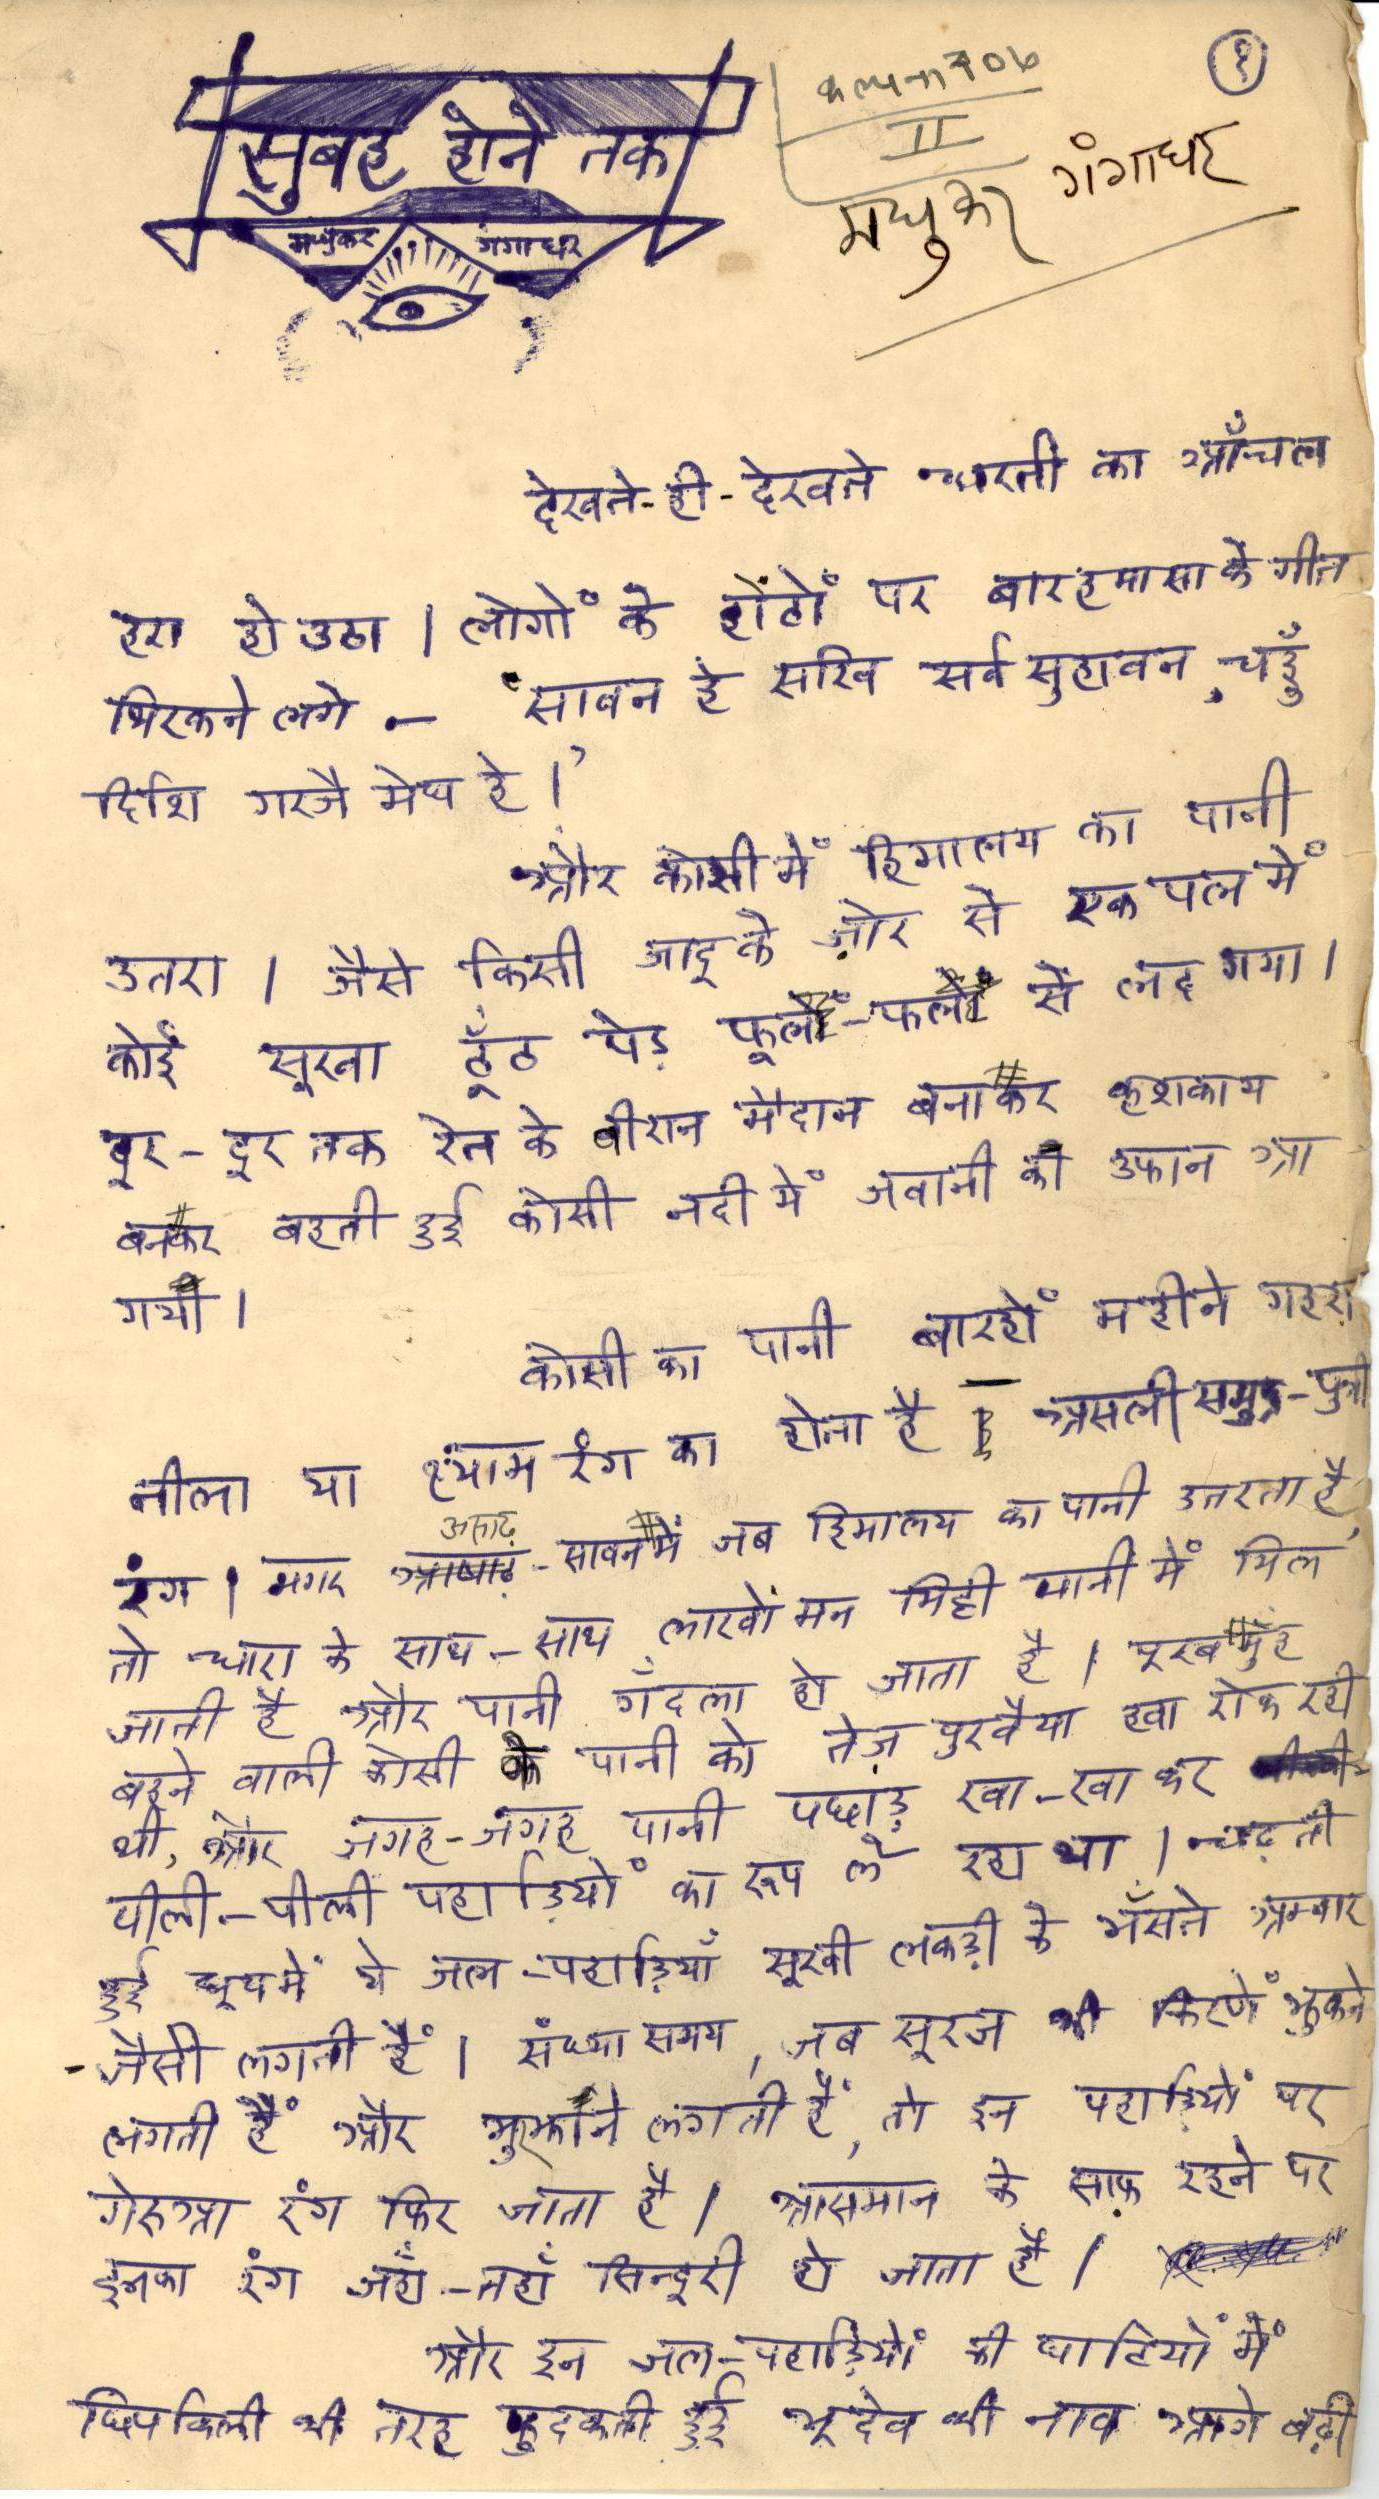 १
कल्पना १०७
II
सुबह होने तक
मधुकर गंगाधर
मधुकर गंगाधर
देखते-ही-देखते धरती का आँचल
हरा हो उठा। लोगों के होंठों पर बारहमासा के गीत
थिरकने लगे — 'सावन हे सखि सर्व सुहावन, चहुँ
दिशि गरजै मेघ हे।'
और कोसी में हिमालय का पानी
उतरा। जैसे किसी जादू के ज़ोर से एक पल में
कोई सूखा ठूँठ पेड़ फूलों-फलों से लद गया।
दूर-दूर तक रेत के वीरान मैदान बनाकर कृशकाय
बनकर बहती हुई कोसी नदी में जवानी की उफान आ
गयी।
कोसी का पानी बारहों महीने गहरा
नीला या श्याम रंग का होता है — असली समुद्र-पुत्री
रंग। मगर असाढ़-सावन में जब हिमालय का पानी उतरता है,
तो धारा के साथ-साथ लाखों मन मिट्टी पानी में मिल
जाती है और पानी गँदला हो जाता है। पूरब मुँह
बहने वाली कोसी के पानी को तेज़ पुरवैया हवा रोक रही
थी, और जगह-जगह पानी पछाड़ खा-खा कर
पीली-पीली पहाड़ियों का रूप ले रहा था। चढ़ती
हुई धूप में ये जल-पहाड़ियाँ सूखी लकड़ी के भँसते अम्बार
-जैसी लगती हैं। संध्या समय, जब सूरज की किरणें झुकने
लगती हैं और मुरझाने लगती हैं, तो इन पहाड़ियों पर
गेरुआ रंग फिर जाता है। आसमान के साफ़ रहने पर
इनका रंग जहाँ-तहाँ सिन्दूरी हो जाता है।
और इन जल-पहाड़ियों की घाटियों में
छिपकिली की तरह फुदकती हुई भूदेव की नाव आगे बढ़ी